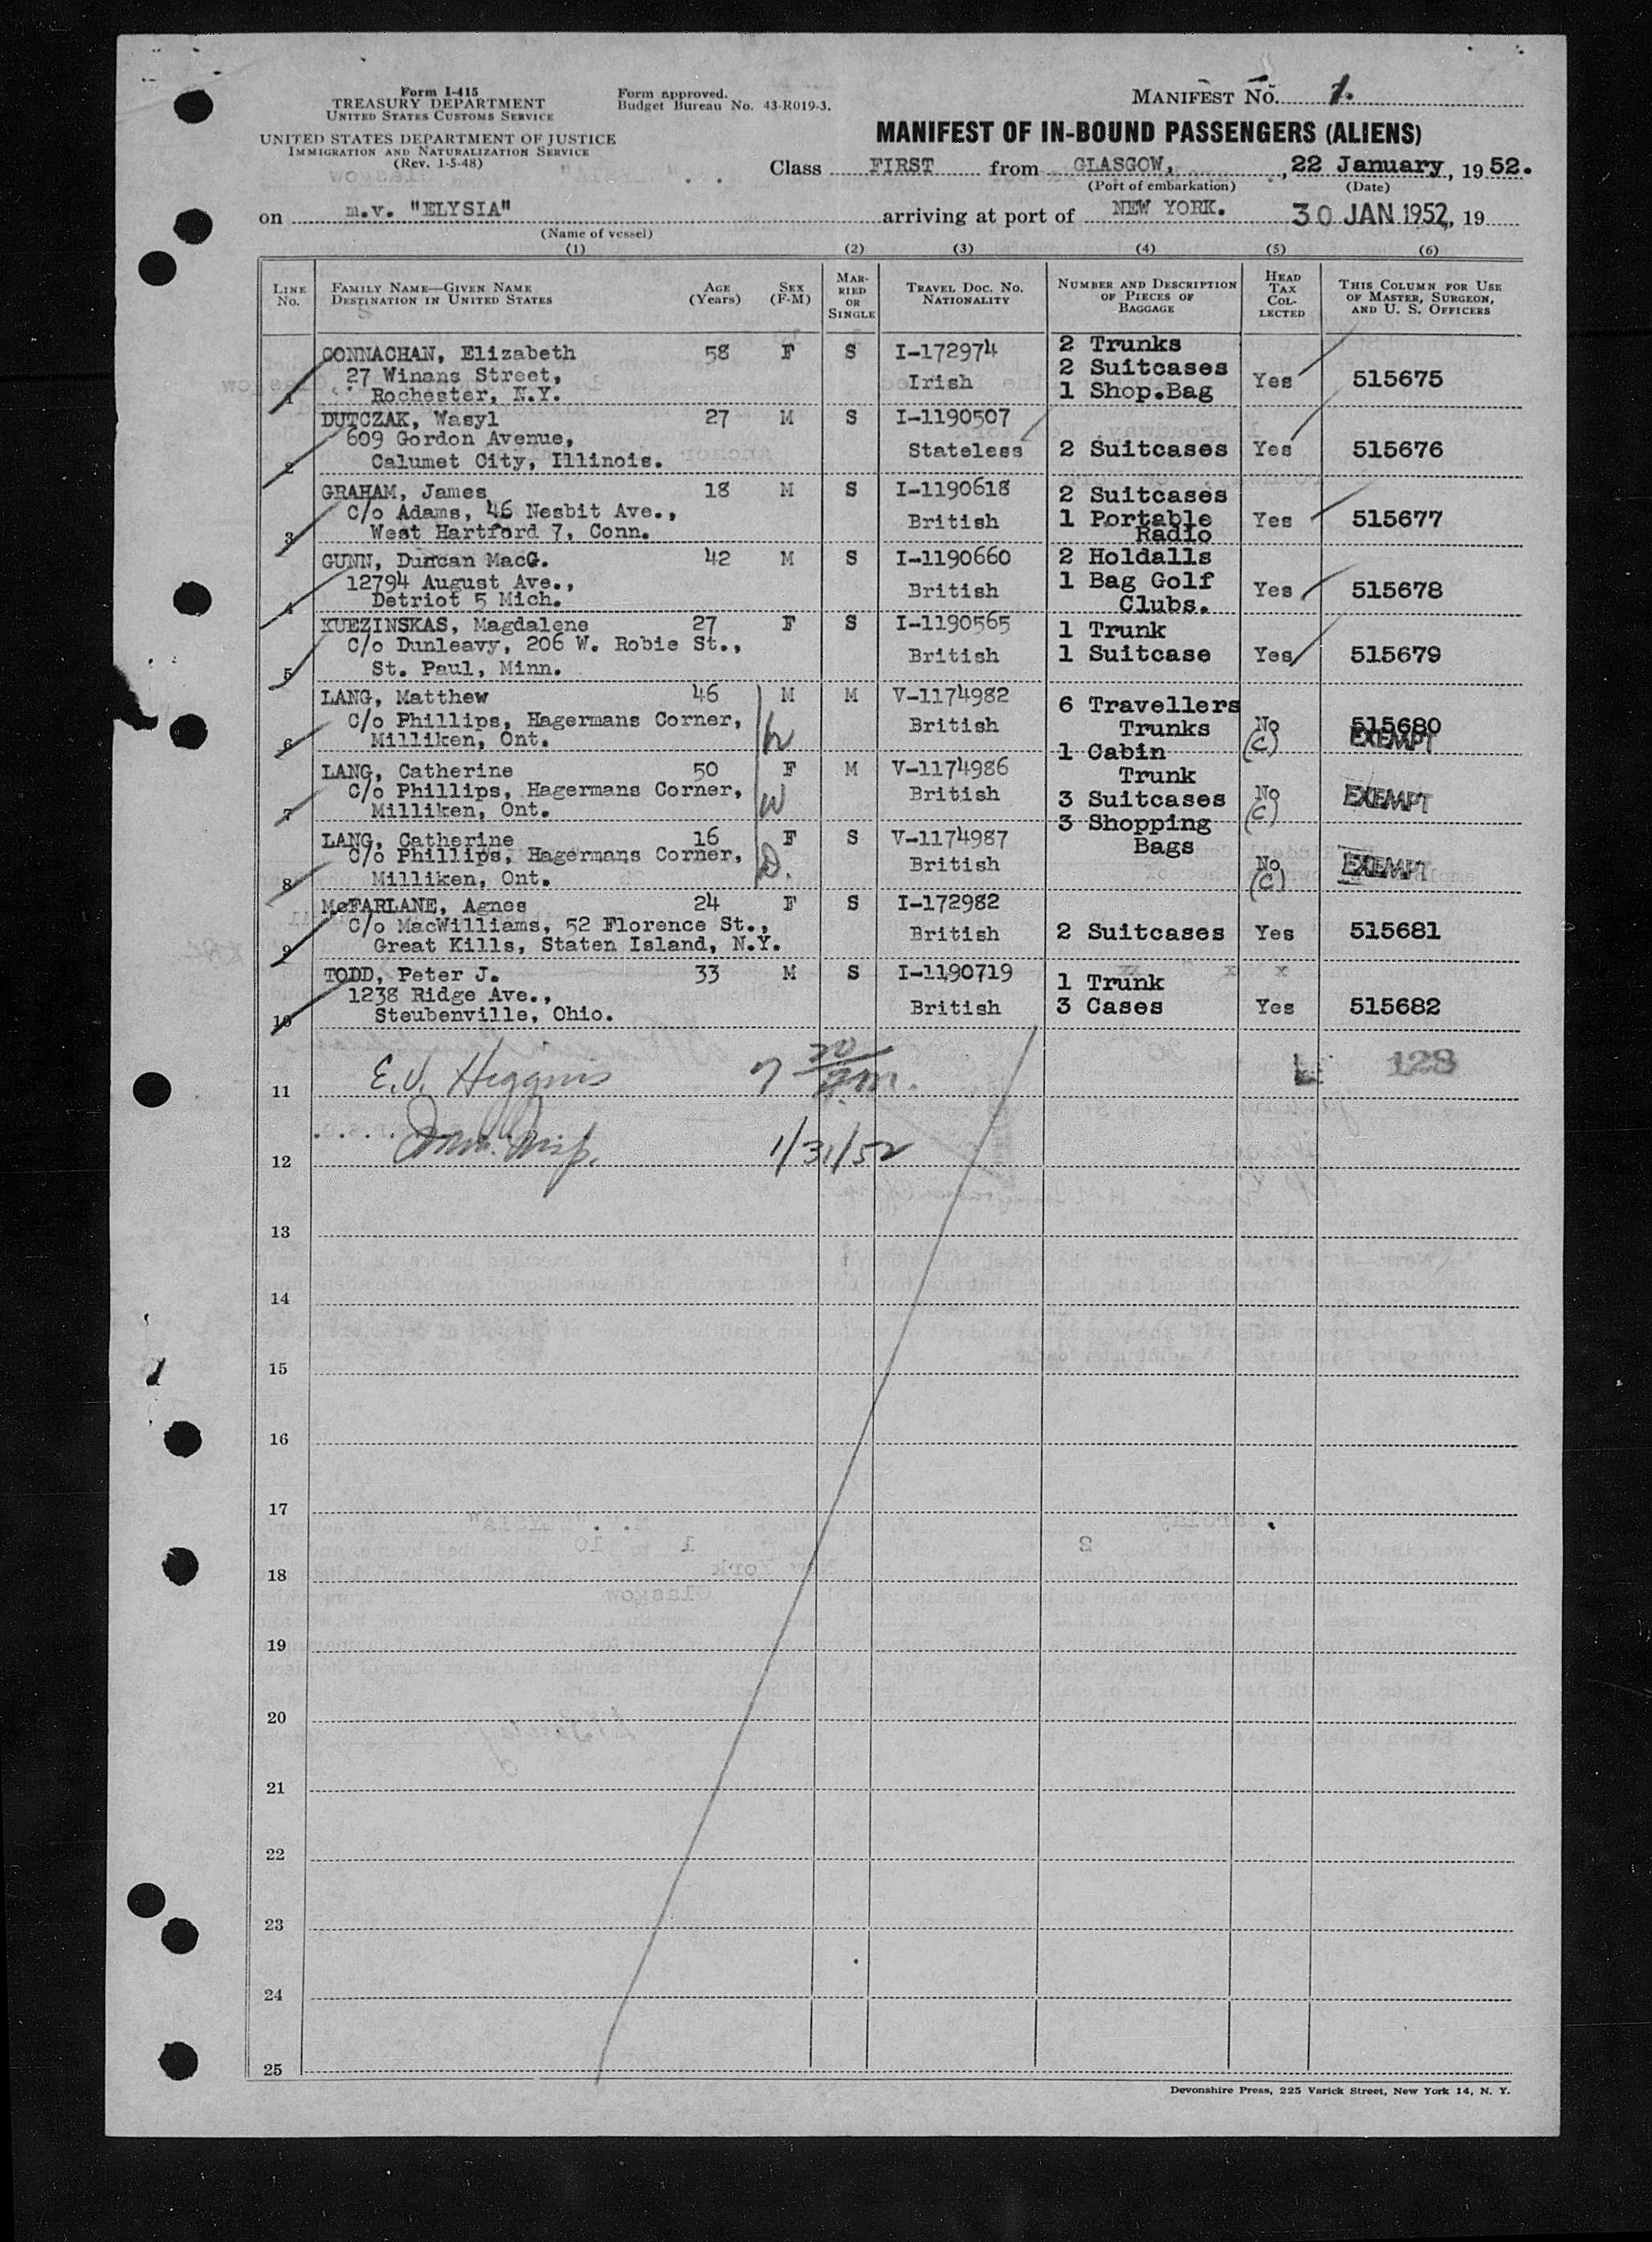 Form I-415
TREASURY DEPARTMENT
UNITED STATES CUSTOMS SERVICE
UNITED STATES DEPARTMENT OF JUSTICE
IMMIGRATION AND NATURALIZATION SERVICE
(Rev. 1-5-48)
Form approved.
Budget Bureau No. 43-R019-3.
MANIFEST No. 1.
MANIFEST OF IN-BOUND PASSENGERS (ALIENS)
Class FIRST from GLASGOW, , 22 January, 1952.
(Port of embarkation) (Date)
on m.v. "ELYSIA" arriving at port of NEW YORK. 30 JAN 1952, 19
(Name of vessel)
(1) (2) (3) (4) (5) (6)
LINE No. FAMILY NAME—GIVEN NAME DESTINATION IN UNITED STATES AGE (Years) SEX (F-M) MARRIED OR SINGLE TRAVEL DOC. NO. NATIONALITY NUMBER AND DESCRIPTION OF PIECES OF BAGGAGE HEAD TAX COLLECTED THIS COLUMN FOR USE OF MASTER, SURGEON, AND U. S. OFFICERS
CONNACHAN, Elizabeth 58 F S I-172974 2 Trunks
27 Winans Street, Irish 2 Suitcases Yes 515675
1 Rochester, N.Y. 1 Shop.Bag
DUTCZAK, Wasyl 27 M S I-1190507
609 Gordon Avenue,
2 Calumet City, Illinois. Stateless 2 Suitcases Yes 515676
GRAHAM, James 18 M S I-1190618 2 Suitcases
C/o Adams, 46 Nesbit Ave., British 1 Portable Yes 515677
3 West Hartford 7, Conn. Radio
GUNN, Duncan MacG. 42 M S I-1190660 2 Holdalls
12794 August Ave., British 1 Bag Golf Yes 515678
4 Detriot 5 Mich. Clubs.
KUEZINSKAS, Magdalene 27 F S I-1190565 1 Trunk
C/o Dunleavy, 206 W. Robie St., British 1 Suitcase Yes 515679
5 St. Paul, Minn.
LANG, Matthew 46 M M V-1174982 6 Travellers
C/o Phillips, Hagermans Corner, h British Trunks No 515680
6 Milliken, Ont. 1 Cabin (C) EXEMPT
LANG, Catherine 50 F M V-1174986 Trunk
C/o Phillips, Hagermans Corner, W British 3 Suitcases No EXEMPT
7 Milliken, Ont. 3 Shopping (C)
LANG, Catherine 16 F S V-1174987 Bags
C/o Phillips, Hagermans Corner, D. British No EXEMPT
8 Milliken, Ont. (C)
McFARLANE, Agnes 24 F S I-172982
C/o MacWilliams, 52 Florence St., British 2 Suitcases Yes 515681
9 Great Kills, Staten Island, N.Y.
TODD, Peter J. 33 M S I-1190719 1 Trunk
1238 Ridge Ave., British 3 Cases Yes 515682
10 Steubenville, Ohio.
11 E.J. Higgins 7 30/a.m. 128
12 Imm. Insp. 1/31/52
13
14
15
16
17
18
19
20
21
22
23
24
25
Devonshire Press, 225 Varick Street, New York 14, N. Y.